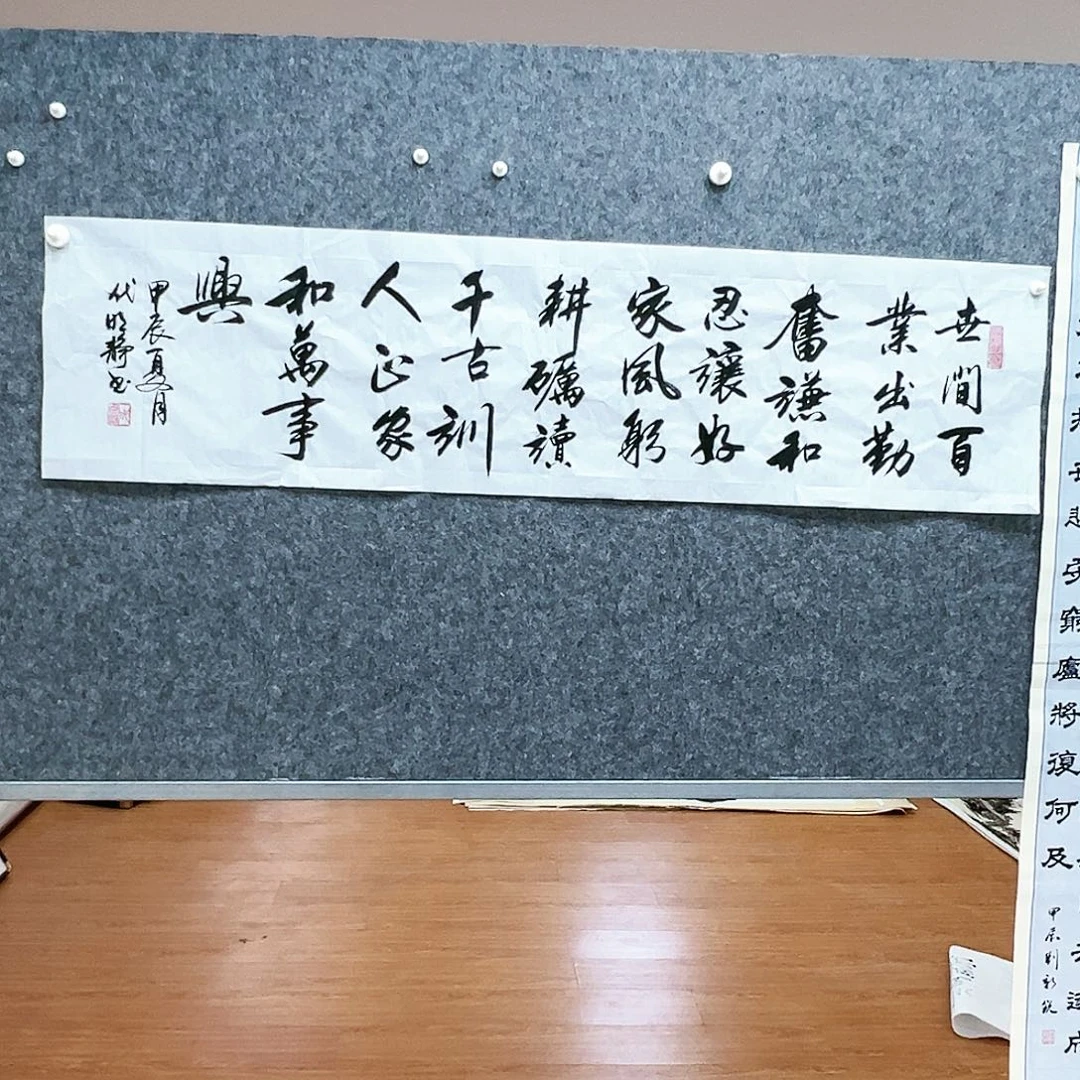 世間百
業出勤
奮謙和
忍讓好
家風躬
耕礪讀
千古訓
人正家
和萬事
興
甲辰夏月
代明靜书
窮廬將復何及
甲辰劉新銳